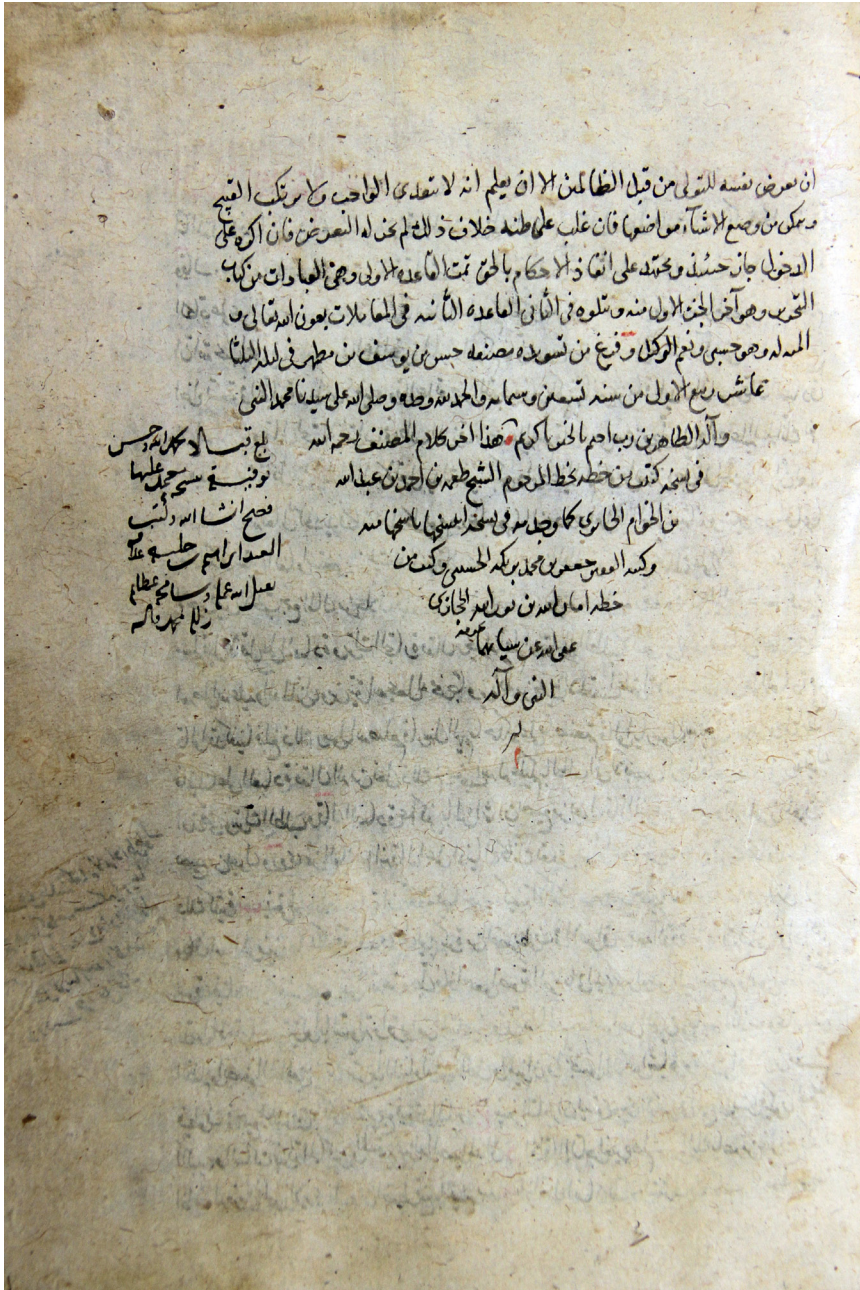 ان يعرض نفسه للتولى من قبل الظالمين الا ان يعلم انه لا يتعدى الواجب ولا يرتكب القبيح
ويمكن من وضع الاشياء مواضعها فان غلب على ظنه خلاف ذلك لم يجز له التعرض فان اكره على
الدخول جاز حينئذ ويجتهد على انفاذ الاحكام بالحق تمت القاعدة الاولى وهى العبادات من كتاب
التحرير وهو آخر الجزء الاول منه ويتلوه فى الثانى القاعدة الثانيه فى المعاملات بعون الله تعالى و
الحمد لله وهو حسبى ونعم الوكيل وفرغ من تسويده مصنفه حسن بن يوسف بن مطهر فى ليلة الثلثا
عاشر ربيع الاول من سنه تسعين وستمايه والحمد لله وحده وصلى الله على سيدنا محمد النبى
وآله الطاهرين رب اختم بالخير يا كريم هذا آخر كلام المصنف رحمه الله
فى نسخه كتبت من خطه بخط المرحوم الشيخ طعمه بن احمد بن عبد الله
بن
كما وجد فى نسخة
وكتبه الفقير جعفر بن محمد بن بكه الحسينى وكتب من
خطه امان الله بن نور الله الحجازى
عفى الله عن سياتهما بحرمة
النبى وآله
بلغ قبالا بحمد الله وحسن
توفيقه
فصح انشا الله وكتب
العبد ابراهيم